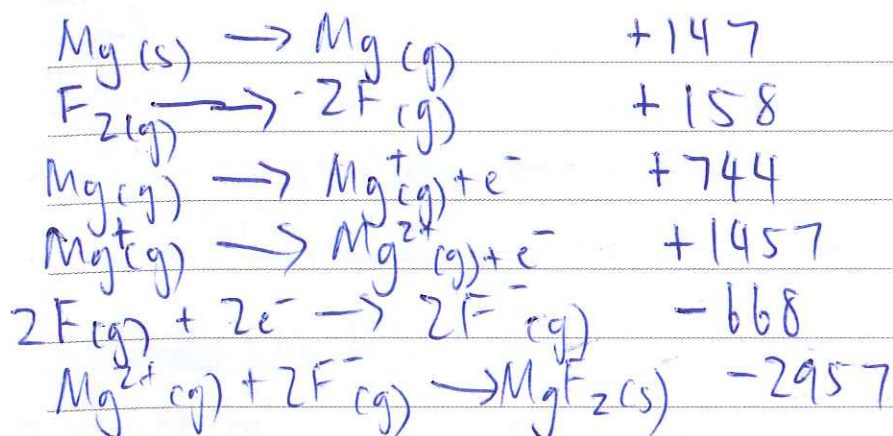 Mg(s) → Mg(g) +147
F2(g) → 2F(g) +158
Mg(g) → Mg+(g) + e- +744
Mg+(g) → Mg2+(g) + e- +1457
2F(g) + 2e- → 2F-(g) -668
Mg2+(g) + 2F-(g) → MgF2(s) -2957